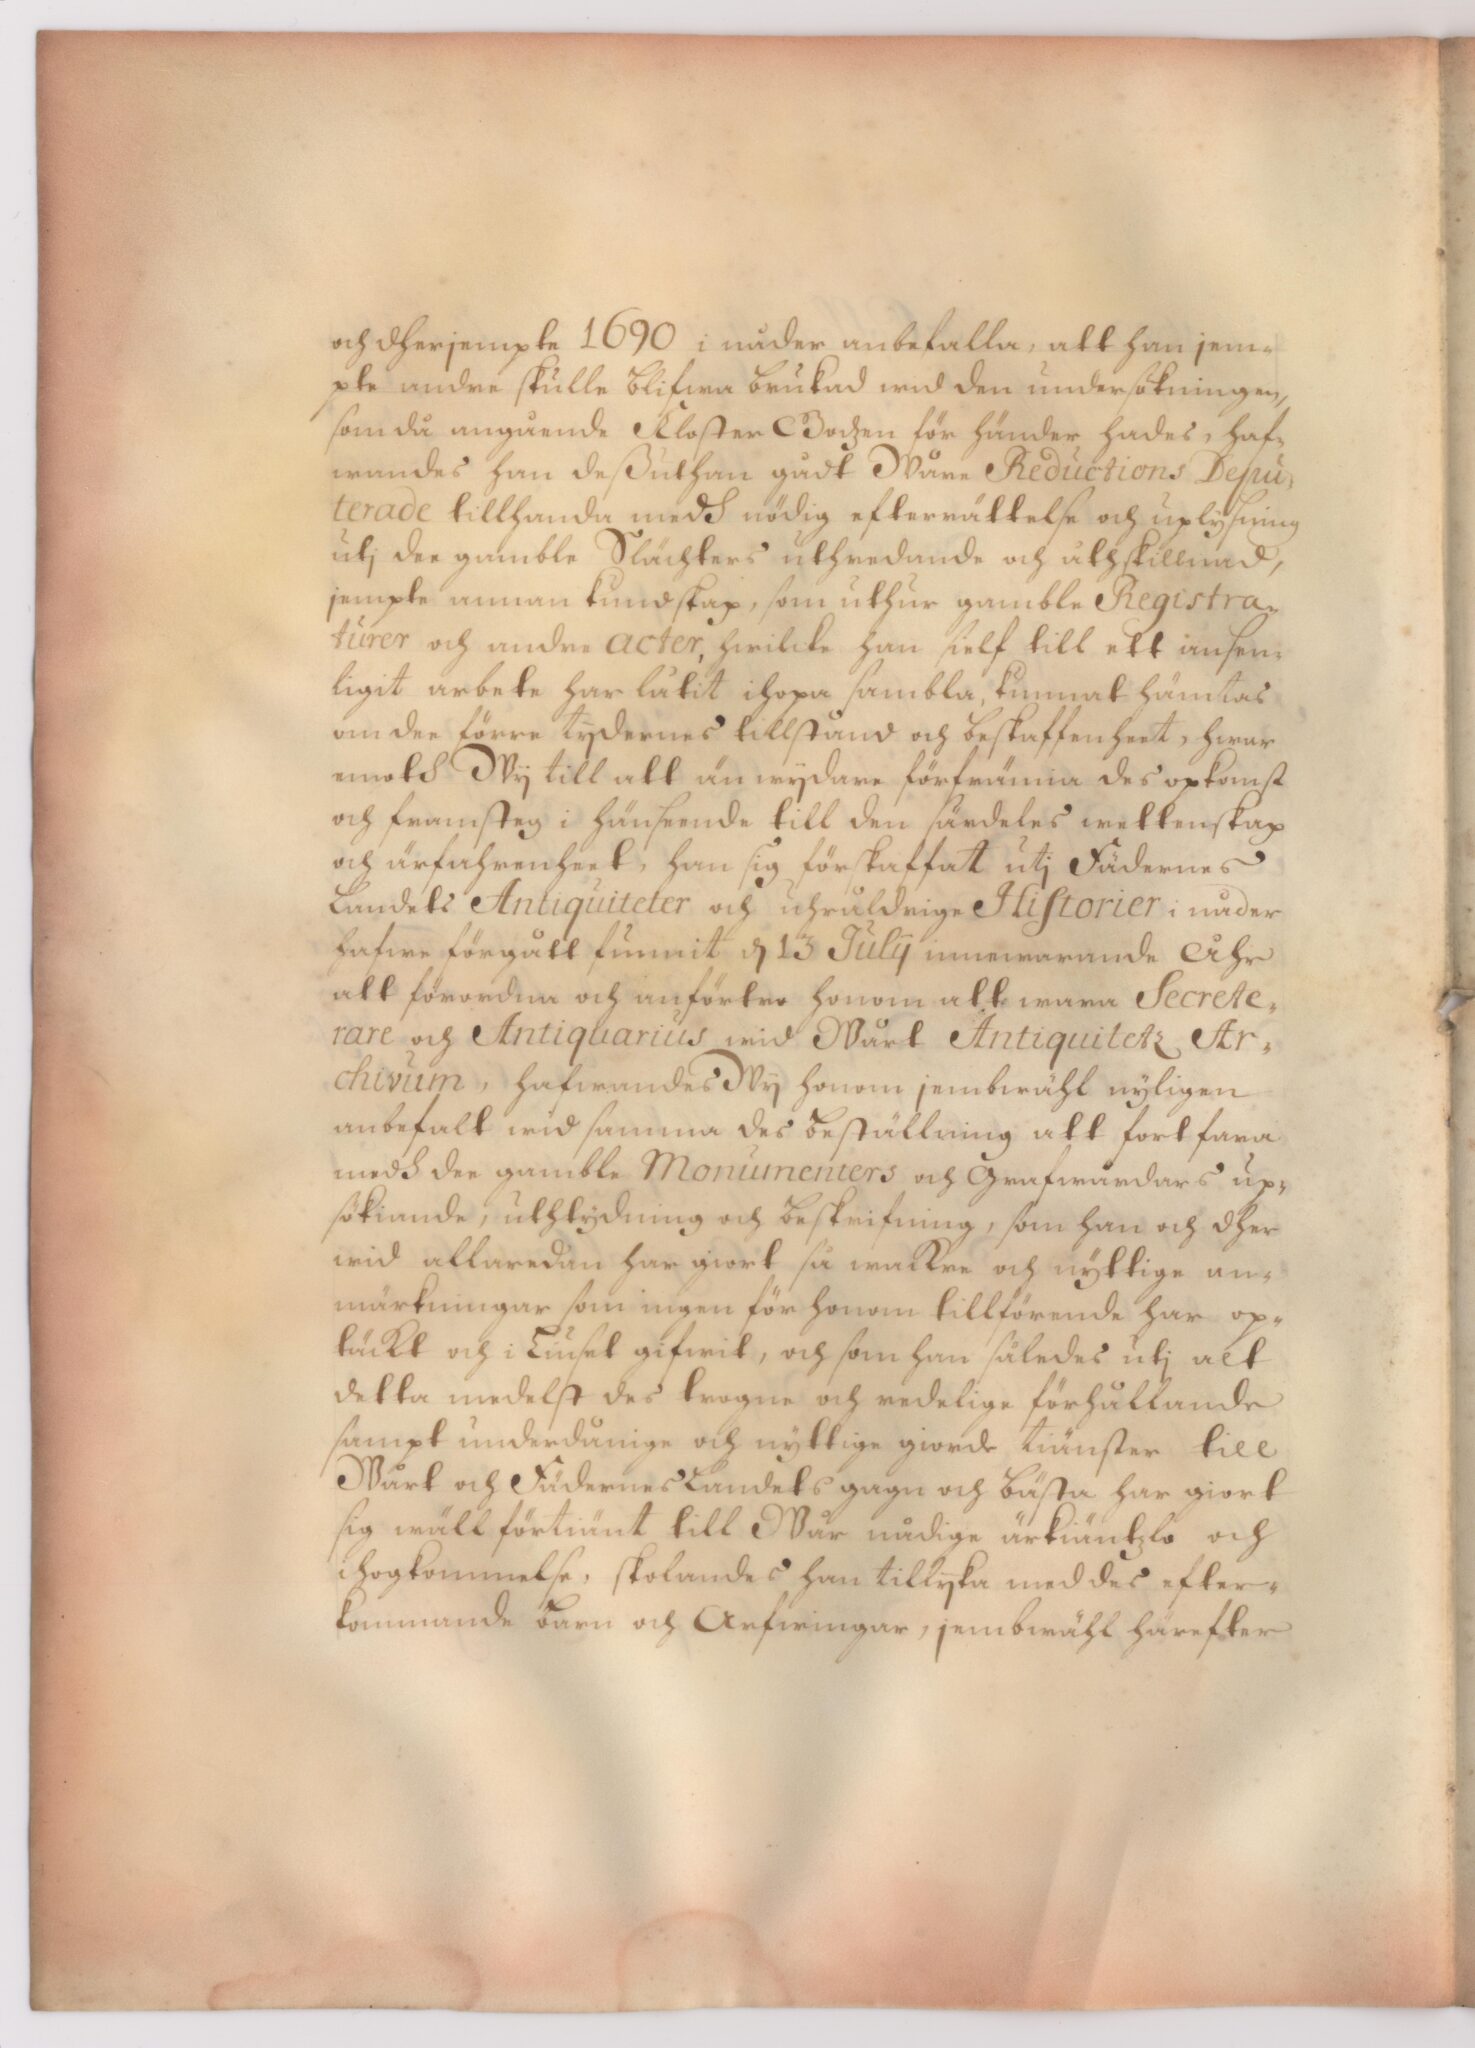 och dherjempte 1690 i nåder anbefalla, att han jem-
pte andre skulle blifwa brukad wid den undersökningen,
som då angående Kloster Godzen för händer hades, haf-
wandes han deßuthan gådt Wåre Reductions Depu-
terade tillhanda medh nödig efterrättelse och uplysning
utj dee gamble Slächters uthredande och åthskillnad,
jempte annan kundskap, som uthur gamble Registra-
turer och andre acter, hwilcke han sielf till ett ansen-
ligit arbete har låtit ihopa sambla, kunnat hämtas
om dee förre tydernes tillstånd och beskaffenheet, hwar
emoth Wij till att än wydare förfrämia des opkomst
och framsteg i hänseende till den särdeles wettenskap
och ärfahrenheet, han sig förskaffat utj Fädernes
Landets Antiquiteter och uhråldrige Historier i nåder
hafwe förgått funnit d 13 July innewarande Åhr
att förordna och anförtro honom att wara Secrete-
rare och Antiquarius wid Wårt Antiquitetz Ar-
chivum, hafwandes Wij honom jembwähl nyligen
anbefalt wid samma des beställning att fortfara
medh dee gamble Monumenters och Grafwårdars up-
sökiande, uthtydning och beskrifning, som han och dher
wid allaredan har giort så wackre och nyttige an-
märkningar som ingen för honom tillförende har op-
täckt och i Liuset gifwit, och som han således utj alt
detta medelst des trogne och redelige förhållande
sampt underdånige och nyttige giorde tiänster till
Wårt och Fädernes Landets gagn och bästa har giort
sig wäll förtiänt till Wår nådige ärkiäntzlo och
ihogkommelse, skolandes han tillyka med des efter-
kommande barn och Arfwingar, jembwähl härefter